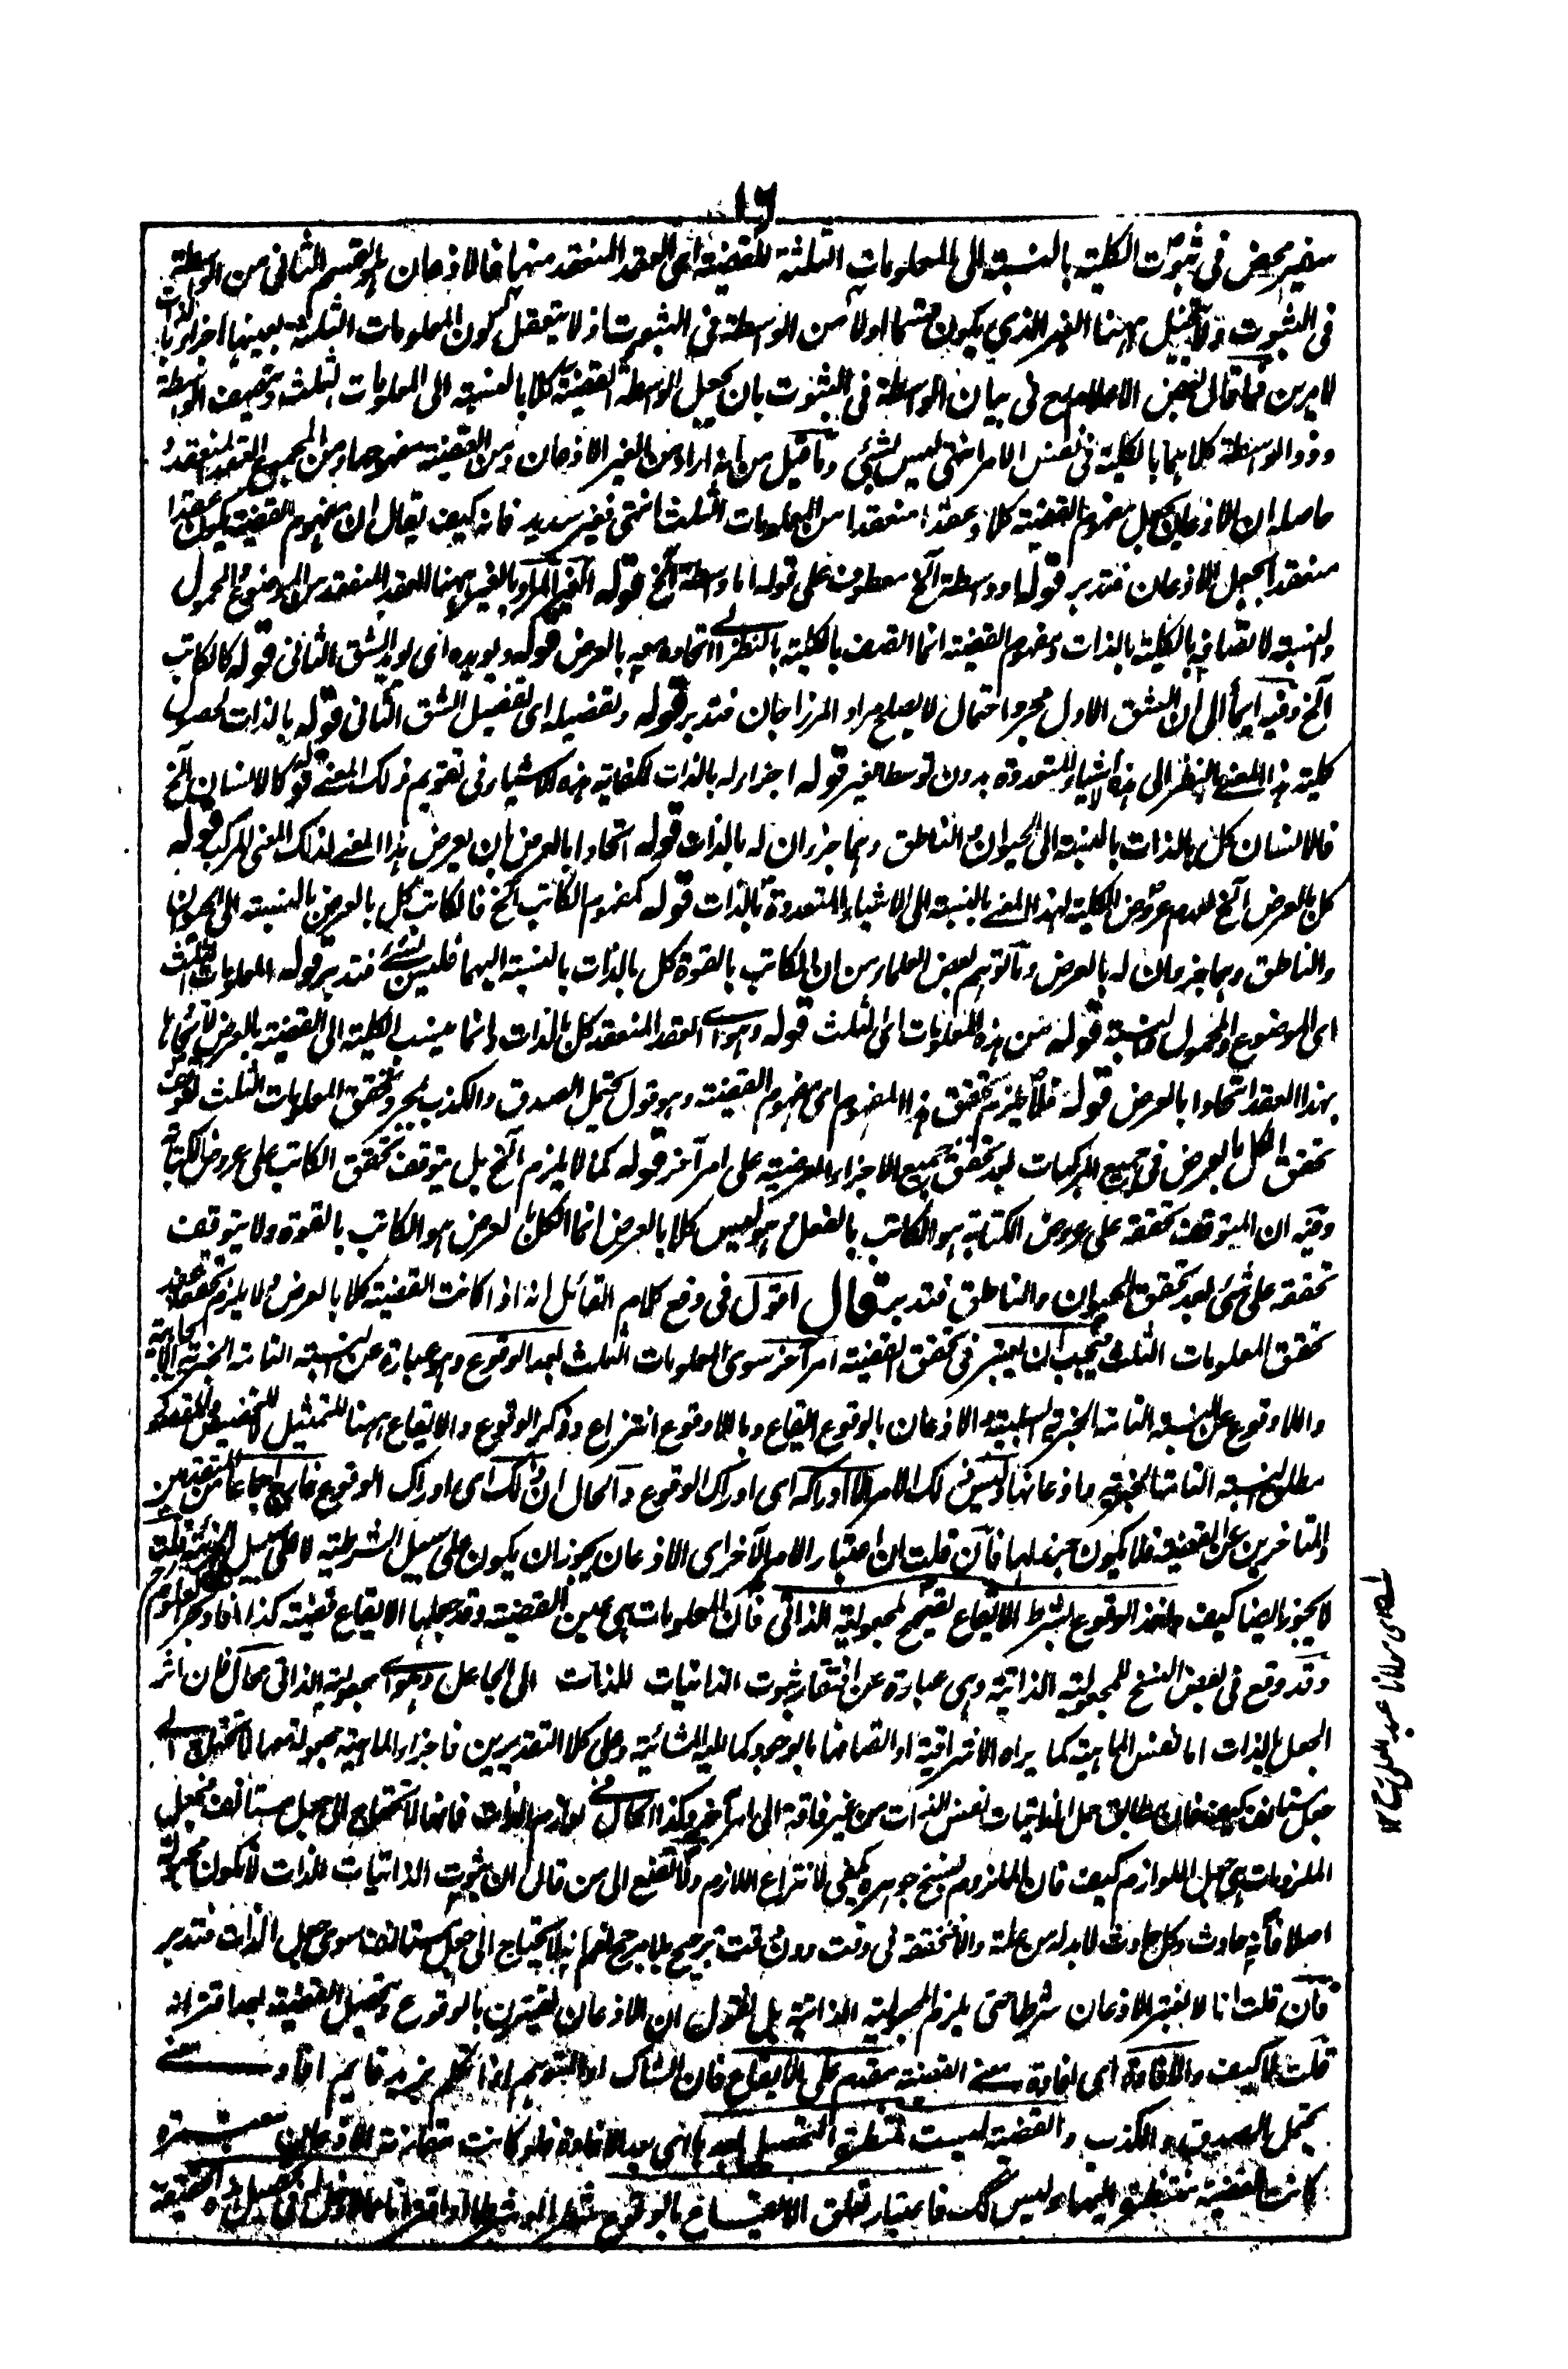 ١٦
سفير محض في ثبوت الكلية بالنسبة الى المعلومات الثلثة للقضية اى العقد المنعقد منها فالاذعان هو القسم الثانى من الواسطة
فى الثبوت ولا يخيل ههنا الغير الذي يكون قسما اولا من الواسطة فى الثبوت اذ لا يتعقل كون المعلومات الثلثة بعينها اجزاء بالذات
لامرين فما قال بعض الاعلام فى بيان الواسطة فى الثبوت بان يجعل الواسطة القضية كلا بالنسبة الى المعلومات الثلث ويتصف الواسطة
وذو الواسطة كلاهما بالكلية فى نفس الامر انتهى ليس بشئ وما قيل من انه اراد من الغير الاذعان ومن القضية مفهومها ومن المجموع العقد المنعقد و
حاصله ان الاذعان يجعل مفهوم القضية كلا وعقدا منعقدا من المعلومات الثلث انتهى فغير سديد فانه كيف يقال ان مفهوم القضية يكون عقدا
منعقدا بجعل الاذعان فتدبر قوله او واسطة آلخ معطوف على قوله اما واسطة آلخ قوله الغير المراد بالغير ههنا العقد المنعقد من الموضوع والمحمول
والنسبة لاتصافه بالكلية بالذات ومفهوم القضية انما اتصف بالكلية بالنظر الى اتحاده معه بالعرض قوله ويويده اى يويد الشق الثانى قوله كالكاتب
آلخ وفيه ايماء الى ان الشق الاول مجرد احتمال لا يصلح مراد المرزاجان فتدبر قوله وتفصيله اى تفصيل الشق الثانى قوله بالذات لحصول
كلية هذا المعنى بالنظر الى هذه الاشياء المتعددة بدون توسط الغير قوله اجزاء له بالذات لكفاية هذه الاشياء فى تقويم ذلك المعنى قوله كالانسان آلخ
فالانسان كل بالذات بالنسبة الى الحيوان والناطق وهما جزءان له بالذات قوله اتحادا بالعرض بان يعرض هذا المعنى لذلك المعنى المركب قوله
كل بالعرض آلخ لعدم عروض الكلية لهذا المعنى بالنسبة الى الاشياء المتعددة بالذات قوله كمفهوم الكاتب آلخ فالكاتب كل بالعرض بالنسبة الى الحيوان
والناطق وهما جزءان له بالعرض وما توهم بعض العلماء من ان الكاتب بالقوة كل بالذات بالنسبة اليهما فليس بشئ فتدبر قوله المعلومات الثلث
اى الموضوع والمحمول والنسبة قوله من هذه المعلومات اى الثلث قوله وهو اى العقد المنعقد كل بالذات وانما ينسب الكلية الى القضية بالعرض لاتحادها
بهذا العقد اتحادا بالعرض قوله فلا يلزم تحقق هذا المفهوم اى مفهوم القضية وهو قول يحتمل الصدق والكذب بمجرد تحقق المعلومات الثلث
تحقق الكل بالعرض فى جميع المركبات بعد تحقق جميع الاجزاء العرضية على امر آخر قوله كما لا يلزم آلخ بل يتوقف تحقق الكاتب على عروض الكتابة
وفيه ان المتوقف تحققه على عروض الكتابة هو الكاتب بالفعل وهو ليس كلا بالعرض انما الكل بالعرض هو الكاتب بالقوة ولا يتوقف
تحققه على شئ بعد تحقق الحيوان والناطق فتدبر قال اقول فى دفع كلام القائل انه اذا كانت القضية كلا بالعرض ولا يلزم تحققها عند
تحقق المعلومات الثلث فيجب ان يعتبر فى تحقق القضية امر آخر سوى المعلومات الثلث بعد الوقوع وهو عبارة عن النسبة التامة الخبرية الايجابية
واللاوقوع عن النسبة التامة الخبرية السلبية والاذعان بالوقوع ايقاع وباللاوقوع انتزاع وذكر الوقوع والايقاع ههنا للتمثيل لا للتخصيص والمقصود
مطلق النسبة التامة الخبرية واذعانها وليس ذلك الامر الا ادراكه اى ادراك الوقوع والحال ان ذلك اى ادراك الوقوع خارج اجماعا من المتقدمين
والمتاخرين عن القضية فلا يكون جزءا لها فآن قلت ان اعتبار الامر الآخر اى الاذعان يجوز ان يكون على سبيل الشرطية لا على سبيل الجزئية قلت
لا يجوز ايضا كيف واخذ الوقوع بشرط الايقاع تصحيح لمجعولية الذاتى فان المعلومات هى عين القضية وقد جعلها الايقاع قضية كذا افاد بحر العلوم
وقد وقع فى بعض النسخ المجعولية الذاتية وهى عبارة عن افتقار ثبوت الذاتيات للذات الى الجاعل وهو اى مجعولية الذاتى محال فان اثر
الجعل بالذات اما نفس الماهية كما يراه الاشراقية او اتصافها بالوجود كما عليه المشائية وعلى كلا التقديرين فاجزاء الماهية مجعولة معها لا تحتاج الى
جعل مستانف كيف فان مطابق حمل الذاتيات نفس الذات من غير فاقة الى امر آخر وكذا الحال فى لوازم الذات فانها لا تحتاج الى جعل مستانف فجعل
الملزومات هى جعل اللوازم كيف فان الملزوم بسنخ جوهره يكفى لانتزاع اللازم ولا تصغ الى من قال ان ثبوت الذاتيات للذات لا يكون مجعولا
اصلا فانه حادث وكل حادث لا بد له من علة والا فتحققه فى وقت دون وقت ترجيح بلا مرجح نعم انه لا يحتاج الى جعل مستانف سوى جعل الذات فتدبر
فآن قلت انا لا نعتبر الاذعان شرطا حتى يلزم المجعولية الذاتية بل نقول ان الاذعان يقترن بالوقوع وتحصيل القضية بعد اقترانه
قلت لا كيف والافادة اى افادة معنى القضية مقدم على الايقاع فان الشاك او المتوهم اذا تكلم بزيد قايم افاد معنى
يحتمل الصدق والكذب والقضية ليست منتظرة التحصيل بعدها اى بعد الافادة فلو كانت مقارنة الاذعان معتبرة
كانت القضية منتظرة اليها وليس كك فاعتبار تعلق الايقاع بالوقوع شطرا او شرطا او اقترانا مما لا دخل له فى تحصيل هذه الحقيقة
اى مولانا عبد العلى